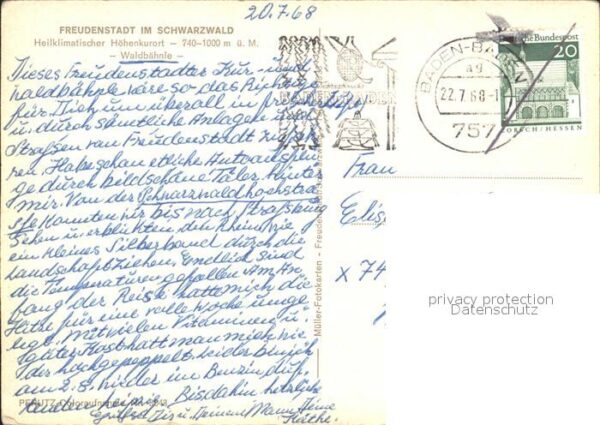 20.7.68
FREUDENSTADT IM SCHWARZWALD
Heilklimatischer Höhenkurort — 740–1000 m ü. M.
— Waldbähnle —
Dieses Freudenstadter Kur- und
Waldbähnle wäre so das Richtige
für Dich, um überall in
u. durch sämtliche Anlagen und
Straßen von Freudenstadt zu
ren. Habe schon etliche Autoausflü-
ge durch bildschöne Täler hinter
mir. Von der Schwarzwaldhochstra
ße konnten wir bis nach Straßburg
sehen u. erblickten den Rhein wie
ein kleines Silberband durch die
Landschaft ziehen. Endlich sind
die Temperaturen gefallen. Am An-
fang der Reise hatte mich die
Hitze für eine volle Woche umge
legt. Mit vielen Vitaminen u.
guter Kost hat man mich wie
der hochgepäppelt, leider bin ich
am 2.8. wieder im
Bis dahin herzliche
Grüße Dir u. Deinem Mann Deine
Käthe.
Müller-Fotokarten - Freudenstadt
BADEN-BADEN
22.7.68-1
757
Deutsche Bundespost
20
LORSCH/HESSEN
Frau
Elis
x 74
privacy protection
Datenschutz